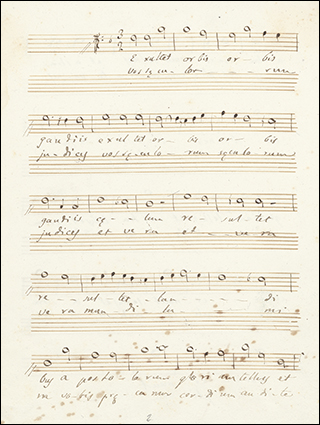 Exultet orbis or - - bis
vos secu - lor - - - rum
gaudiis exultet or - bis or - bis
judices vos seculo - rum seculo rum
gaudiis ce - - lum re - sul - tet
judices et ve ra - - ve ra
re - - - sul - tet - lau - - - di
ve ra mun - di - lu - - mi
bus a posto - lo rum glori am tellus et
na vo - bis pre - ca mur cor - di um au di - te
2